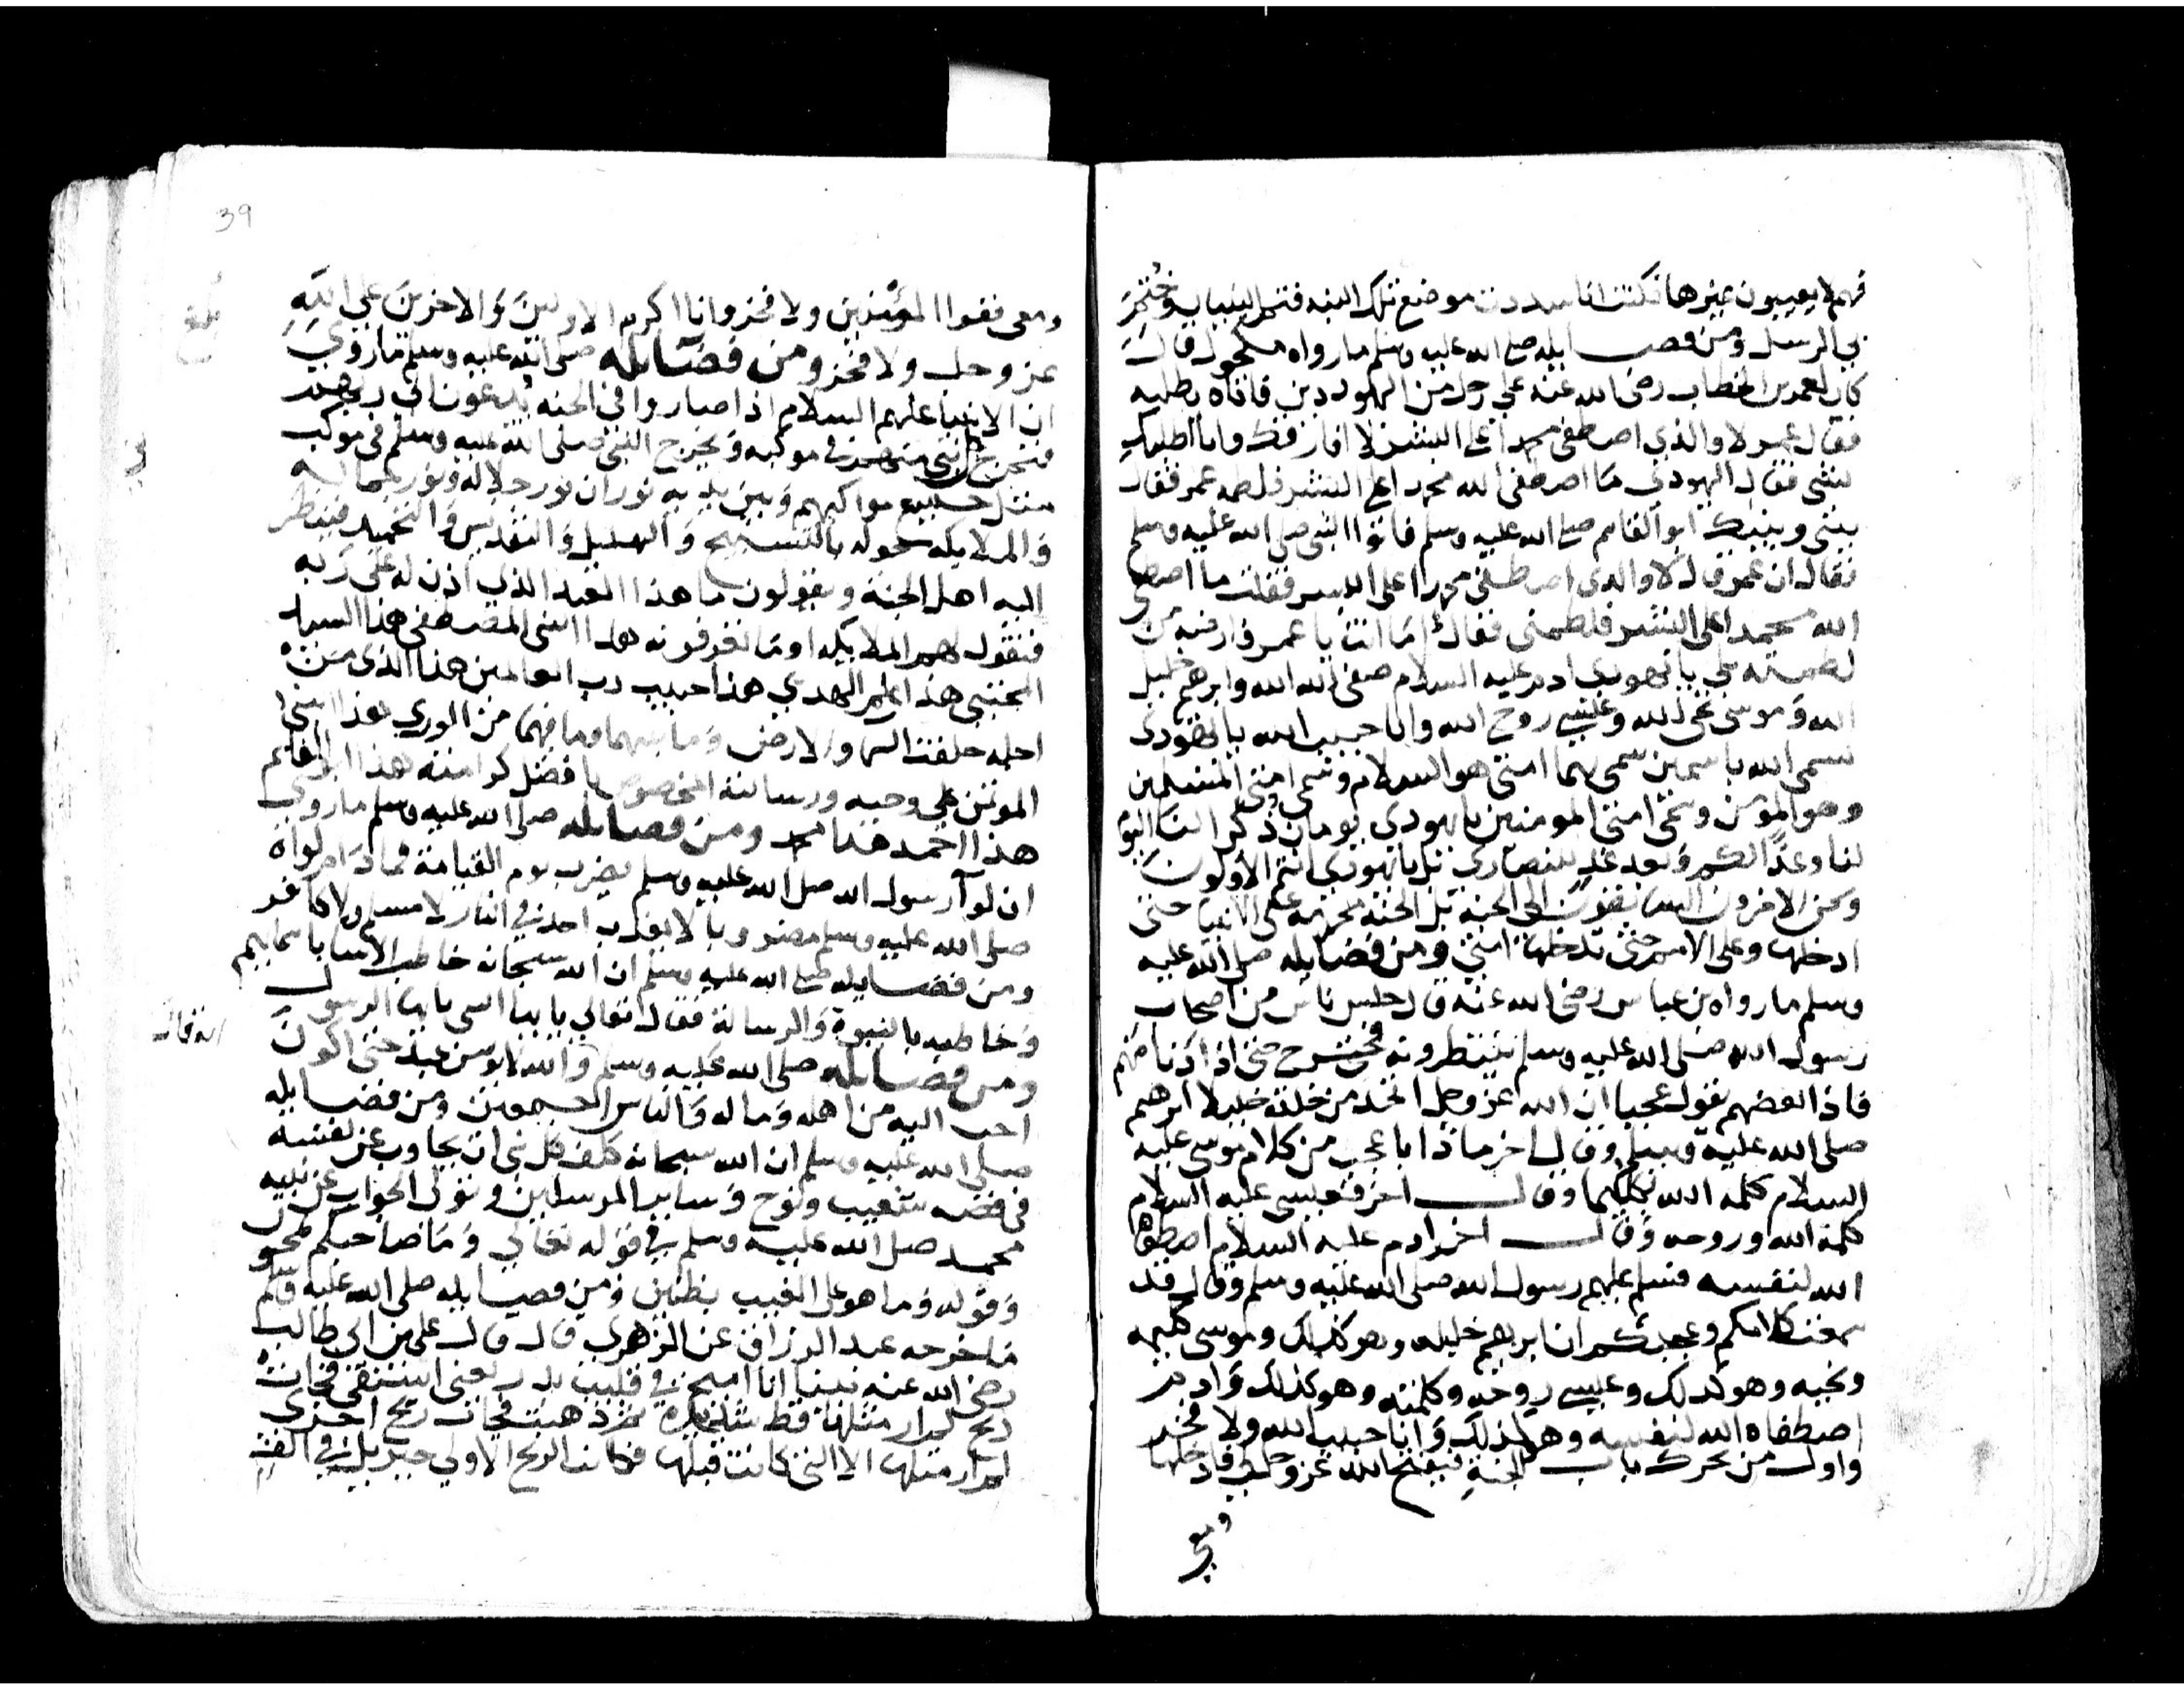 فهم لا يعيبون غيرها فكنت انا سددت موضع تلك اللبنه فتم البنيان وختم
بي الرسل ومن فضايله صلى الله عليه وسلم ما رواه مكحول قال
كان لعمر بن الخطاب رضى الله عنه على رجل من اليهود دين فاتاه يطلبه
فقال عمر لا والذي اصطفى محمدا على البشر لا افارقك وانا اطلبك
بشى فقال اليهودي ما اصطفى الله محمدا على البشر فلطمه عمر فقال
بينى وبينك ابو القاسم صلى الله عليه وسلم فاتوا النبى صلى الله عليه وسلم
فقال ان عمر قال لا والذى اصطفى محمدا على البشر فقلت ما اصطفى
الله محمدا على البشر فلطمنى فقال اما انت يا عمر فارضه من
لطمته بلى يا يهودي ادم عليه السلام صفى الله وابرهيم خليل
الله وموسى نجى الله وعيسى روح الله وانا حبيب الله يا يهودى
تسمى الله باسمين سمى بهما امتى هو السلام وسمى امتى المسلمين
وهو المومن وسمى امتى المومنين يا يهودي يوما ذكر لنا اليوم
لنا وغدا لكم وبعد غد للنصارى بل يا يهودي انتم الاولون
ونحن الاخرون السابقون الى الجنة بل الجنة محرمة على الانبيا حتى
ادخلها وعلى الامم حتى تدخلها امتي ومن فضايله صلى الله عليه
وسلم ما رواه بن عباس رضى الله عنه قال جلس ناس من اصحاب
رسول الله صلى الله عليه وسلم ينتظرونه فخرج حتى اذا دنا منهم
فاذا بعضهم يقول عجبا ان الله عز وجل اتخذ من خلقه خليلا ابرهيم
صلى الله عليه وسلم وقال اخر ماذا باعجب من كلام موسى عليه
السلام كلمه الله تكليما وقال اخر فعيسى عليه السلام
كلمة الله وروحه وقال اخر ادم عليه السلام اصطفاه
الله لنفسه فسلم عليهم رسول الله صلى الله عليه وسلم وقال قد
سمعت كلامكم وعجبكم ان ابرهيم خليله وهو كذلك وموسى كليمه
ونجيه وهو كذلك وعيسى روحه وكلمته وهو كذلك وادم
اصطفاه الله لنفسه وهو كذلك وانا حبيب الله ولا فخر
واول من يحرك باب الجنة فيفتح الله عز وجل فادخلها
ومعي
39
ومعى فقرا المؤمنين ولا فخر وانا اكرم الاولين والاخرين على الله
عز وجل ولا فخر ومن فضايله صلى الله عليه وسلم ما روي
ان الانبيا عليهم السلام اذا صاروا في الجنه يدعون الى ربهم
فيخرج كل نبي منهم في موكبه ويخرج النبى صلى الله عليه وسلم في موكب
مثل جميع مواكبهم وبين يديه نوران نور جلاله ونور جماله
والملايكه حوله بالتسبيح والتهليل والتقديس والتحميد فينظر
اليه اهل الجنة ويقولون ما هذا العبد الذي اذن له على ربه
فتقول لهم الملايكه اوما تعرفونه هذا النبي المصطفى هذا السيد
المجتبى هذا علم الهدي هذا حبيب رب العالمين هذا الذى من
اجله خلقت السما والارض وما بينهما وما فيهما من الورى هذا النبي
الموتمن على وحيه ورسالته المخصوص بافضل كرامته هذا ابو القاسم
هذا احمد هذا محمد ومن فضايله صلى الله عليه وسلم ما روي
ان لوآ رسول الله صلى الله عليه وسلم يضرب يوم القيامة فما دام لواه
صلى الله عليه وسلم مضروبا لا يعذب احد في النار لا مسلم ولا كافر
ومن فضايله صلى الله عليه وسلم ان الله سبحانه خاطب الانبيا باسمايهم
وخاطبه بالنبوة والرسالة فقال تعالي يا ايها النبى يا ايها الرسول
ومن فضايله صلى الله عليه وسلم والله لا يومن عبد حتى اكون
احب اليه من اهله وماله والناس اجمعين ومن فضايله
صلى الله عليه وسلم ان الله سبحانه كلف كل نبى ان يجاوب عن نفسه
في قصه شعيب ونوح وساير المرسلين وتولى الجواب عن نبيه
محمد صلى الله عليه وسلم في قوله تعالي وما صاحبكم بمجنون
وقوله وما هو على الغيب بظنين ومن فضايله صلى الله عليه وسلم
ما خرجه عبد الرزاق عن الزهرى قال قال على بن ابى طالب
رضى الله عنه بينا انا اميح في قليب بدر يعنى استقى فجات
ريح لم ار مثلها قط شدة ثم ذهبت فجات ريح اخرى
لم ار مثلها الا التى كانت قبلها فكانت الريح الاولى جبريل في الف